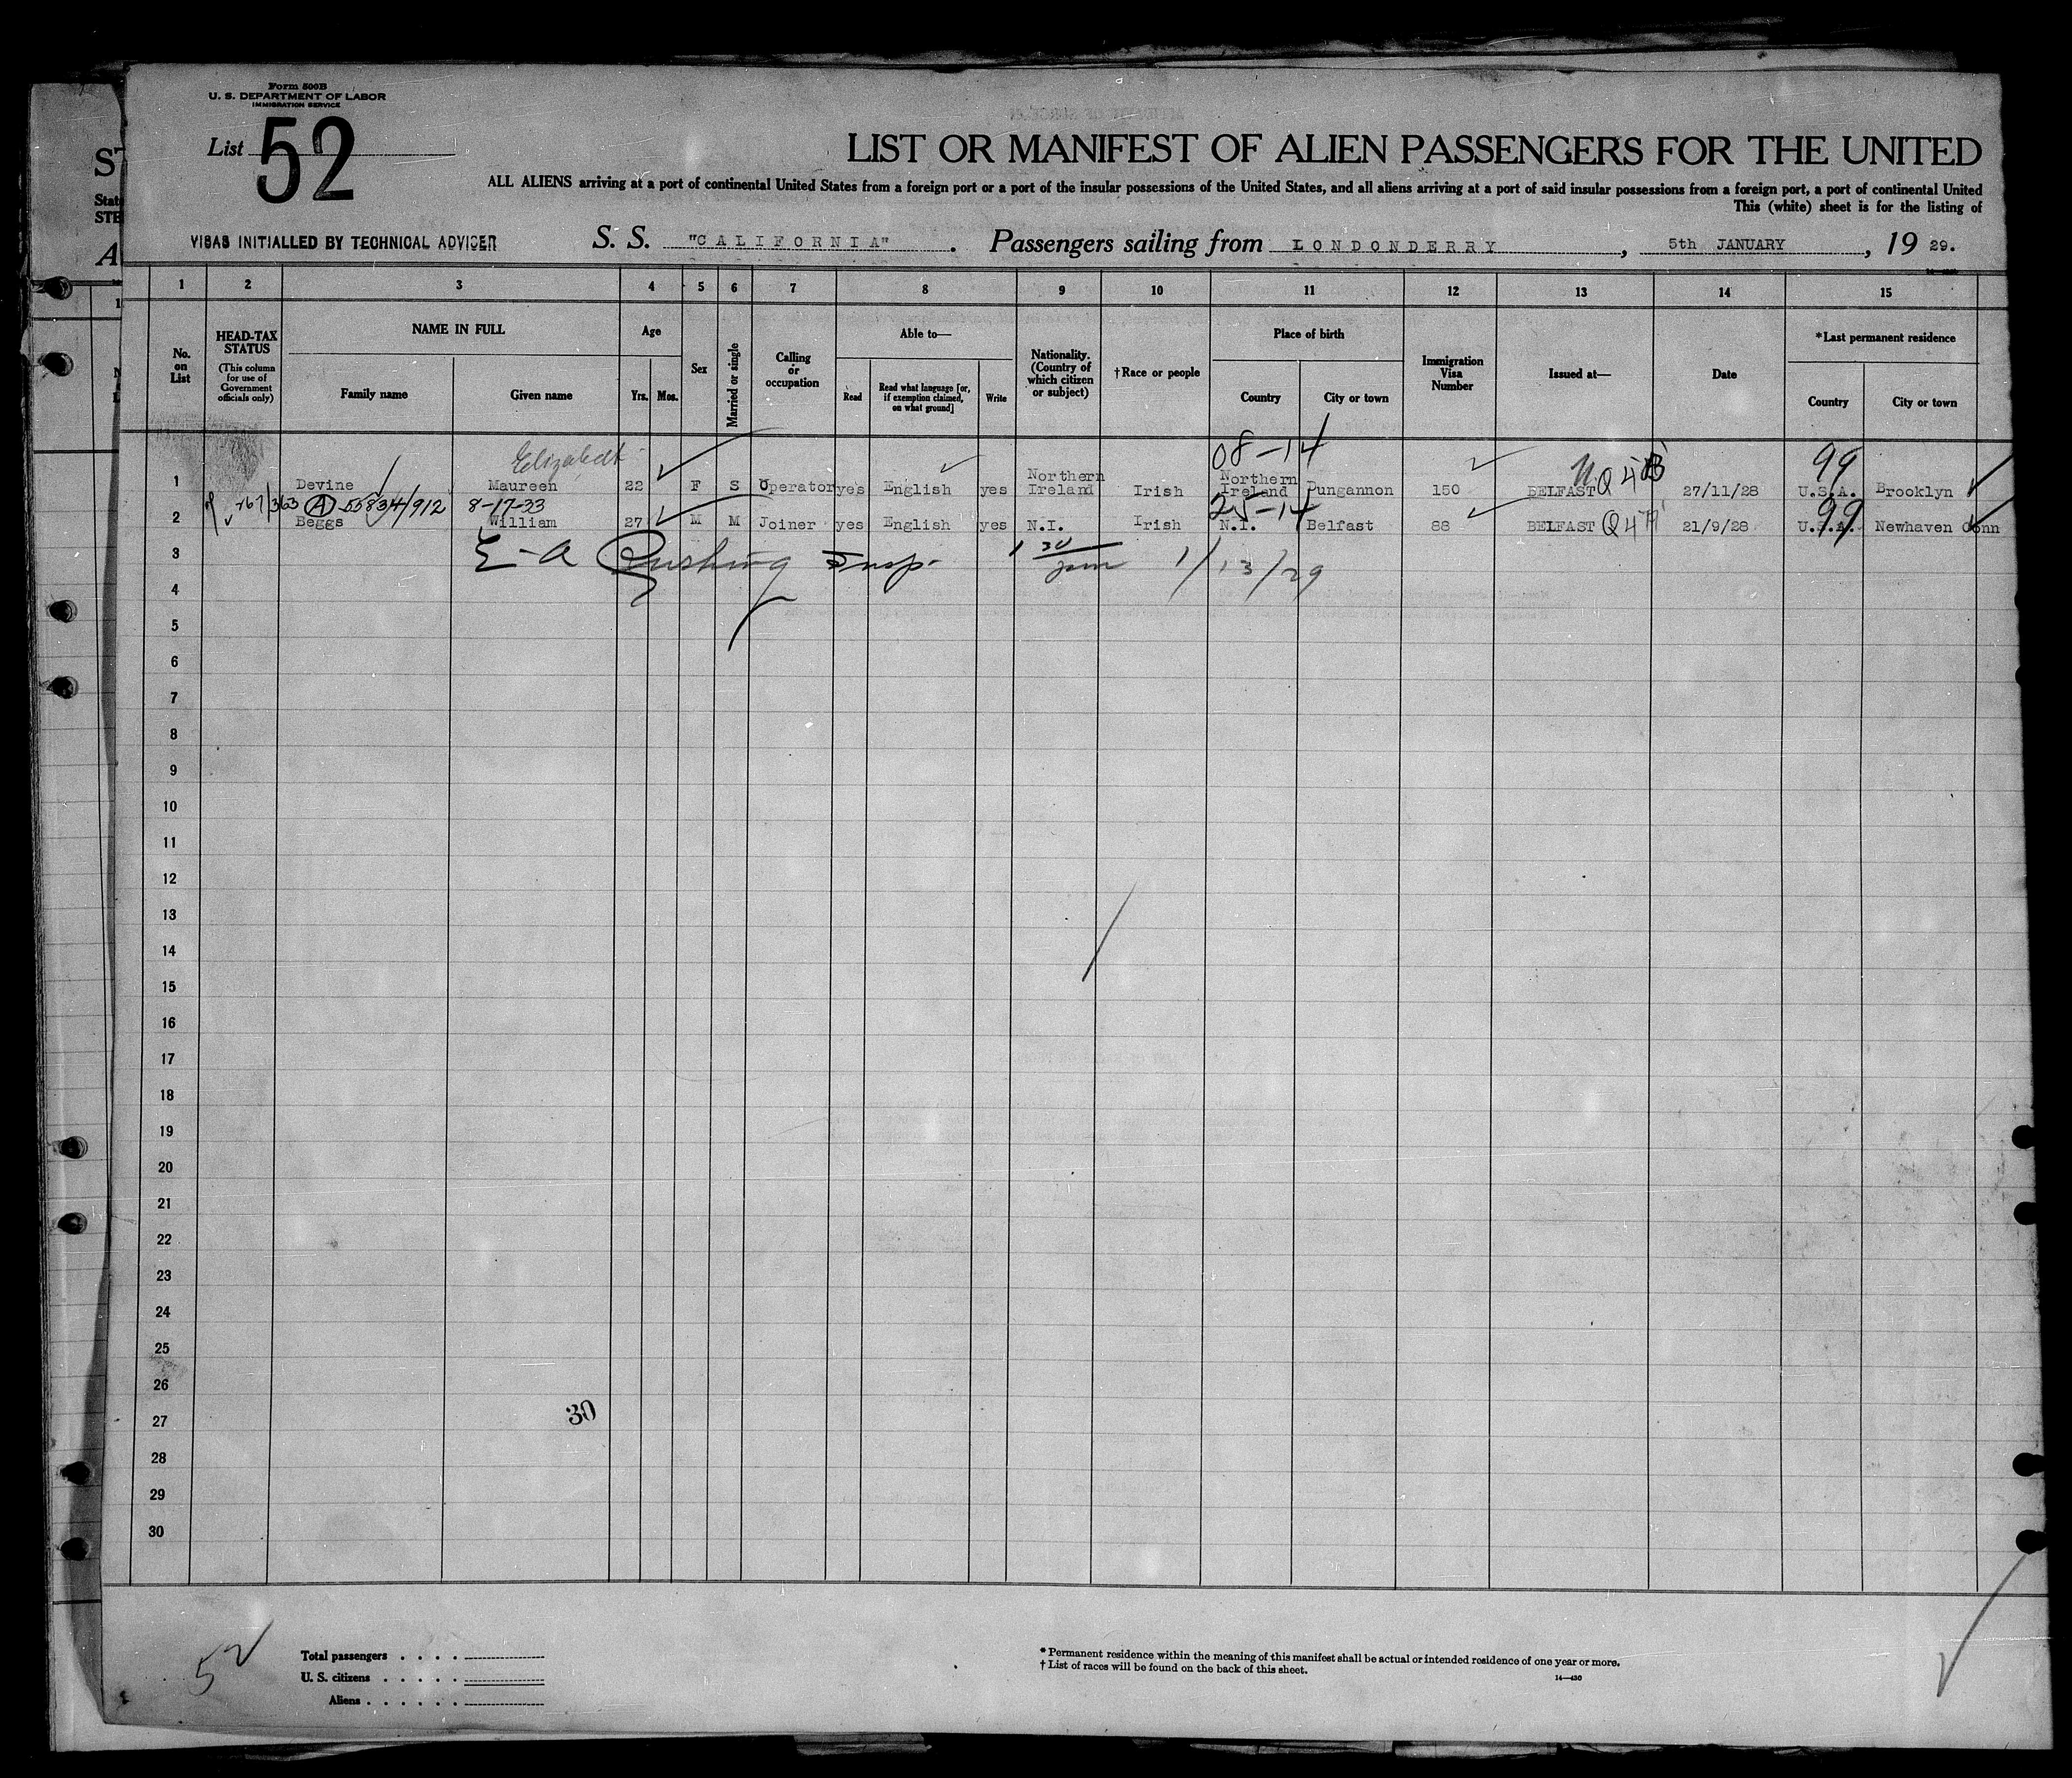 Form 500B
U. S. DEPARTMENT OF LABOR
IMMIGRATION SERVICE
List 52
LIST OR MANIFEST OF ALIEN PASSENGERS FOR THE UNITED
ALL ALIENS arriving at a port of continental United States from a foreign port or a port of the insular possessions of the United States, and all aliens arriving at a port of said insular possessions from a foreign port, a port of continental United
This (white) sheet is for the listing of
VISAS INITIALLED BY TECHNICAL ADVISER
S. S. "CALIFORNIA". Passengers sailing from LONDONDERRY, 5th JANUARY, 19 29.
1 2 3 4 5 6 7 8 9 10 11 12 13 14 15
No. on List
HEAD-TAX STATUS
(This column for use of Government officials only)
NAME IN FULL
Family name
Given name
Age
Yrs. Mos.
Sex
Married or single
Calling or occupation
Able to—
Read
Read what language [or, if exemption claimed, on what ground]
Write
Nationality. (Country of which citizen or subject)
†Race or people
Place of birth
Country
City or town
Immigration Visa Number
Issued at—
Date
*Last permanent residence
Country
City or town
Elizabeth 08-14 99
1 Devine Maureen 22 F S Operator yes English yes Northern Ireland Irish Northern Ireland Dungannon 150 BELFAST Q4B 27/11/28 U.S.A. Brooklyn
A 55834/912 8-17-33 25-14 99
2 Beggs William 27 M M Joiner yes English yes N.I. Irish N.I. Belfast 88 BELFAST Q4 21/9/28 U.S.A. Newhaven Conn
3 E-A Cushing Insp. 1/13/29
4
5
6
7
8
9
10
11
12
13
14
15
16
17
18
19
20
21
22
23
24
25
26
27 30
28
29
30
52
Total passengers . . . .
U. S. citizens . . . . .
Aliens . . . . . .
* Permanent residence within the meaning of this manifest shall be actual or intended residence of one year or more.
† List of races will be found on the back of this sheet.
14—430